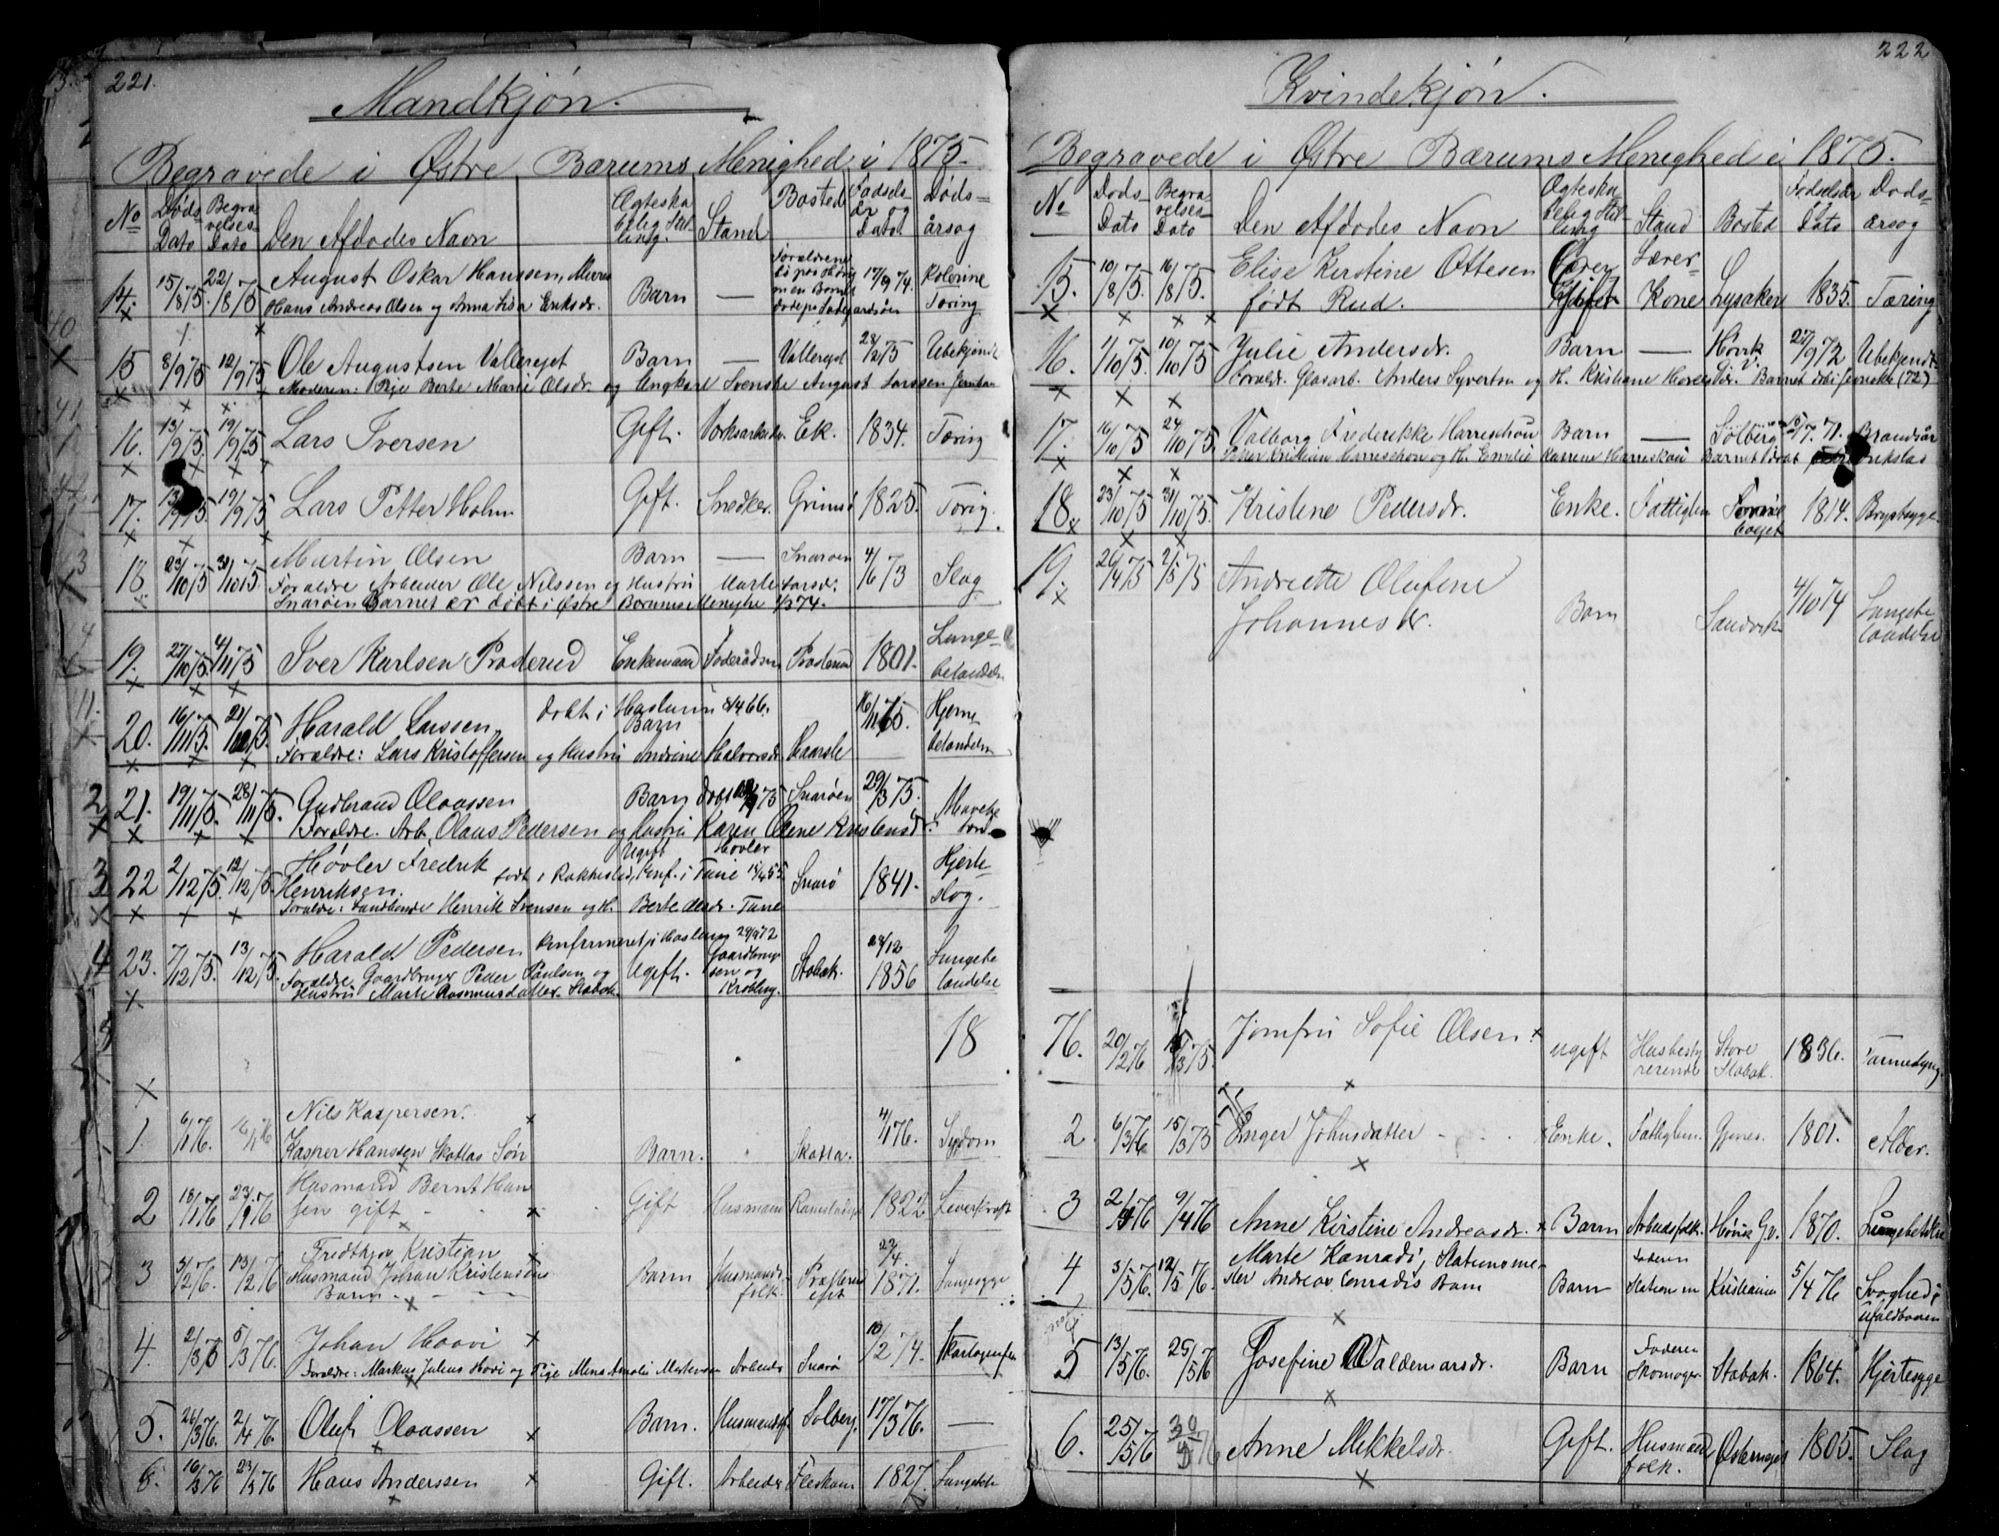 221.
Mandkjøn.
Begravede i Østre Bærums Menighed i 1875.
No Døds Dato Begravelses Dato Den Afdødes Navn Ægteskabelig Stilling Stand Bosted Fødselsår og Dato Dødsårsag
14. 15/8 75 22/8 75 August Oskar Hanssen, Barn — 17/9 74. Kolerine
Hans Andreas Olsen og Anna Lisa Eriksdr. Tæring
15 8/9 75 12/9 75 Ole Augustsen Vallerejet Barn — Vallerejet 28/2 75 Ubekjendt
Moderen: Pige Berte Marie Olsdr. og Ungkarl Svenske August Larssen
16. 13/9 75. 19/9 75 Lars Iversen Gift. Værksarbeider Ek. 1834. Tæring
17. 13/9 75 19/9 75 Lars Petter Holm Gift. Snedker. Grinis 1825. Tæring.
18. 23/10 75 31/10 75 Martin Olsen Barn — Snarøen 4/6 73 Slag
Foraldre Arbeider Ole Nilssen og Hustru Marte Larsdr.
Snarøen Barnet er døbt i Østre Bærums Menighe 1874.
19. 27/10 75. 4/11 75 Iver Karlsen Præderud Enkemand Føderådsm Præsterud 1801. Lungebetændelse
20. 16/11 75. 21/11 75. Harald Larssen, døbt i Haslum 8/4 66. Barn 16/11 65. Hjernebetændelse
Foraldre: Lars Kristoffersen og Hustru Andrine Halvorsdr. Haarsle
21. 19/11 75. 28/11 75. Gudbrand Olaassen Barn døbt 75 Snarøen 29/3 75. Mavebe
Foraldre. Arb. Olaus Pedersen og Hustru Karen Olene Kristensdr.
22 2/12 75. 12/12 75. Høvler Fredrik Henriksen. født i Rakkestad, Konf. i Tune 15/4 55 Ugift Høvler Snarø 1841. Hjerteslag.
Foraldre: Landhandler Henrik Svensen og H. Berte Olesdr. Tune
23. 7/12 75. 13/12 75. Harald Pedersen konfirmeret i Haslum 29/9 72 Ugift. Gaardbrugersøn og Stabæk. 28/12 1856 Lungebetændelse
Foraldre Gaardbruger Peder Paulsen og
Hustru Marte Rasmusdatter Stabæk.
18
1. 6/1 76. 16/1 76 Nils Kaspersen.
Kasper Hanssen Skotlas Søn Barn. Skotta. 4/1 76. Sygdom
2 18/1 76 23/1 76 Husmand Bernt Hansen gift Gift Husmand 1822
3 5/2 76. 13/2 76 Fredthjov Kristian
Husmand Johan Kristensens
Barn Barn Husmandsfolk. 22/4. 1871. Lungesyge
4. 2/3 76 5/3 76. Johan Hoovi Arbeider Snarø 10/2 74. Skarlagensfeber
Foraldre: Markus Julius Hovi og Pige
5. 26/3 76. 2/4 76. Oluf Olaassen Barn. Husmandsf. Solberg. 17/3 76. —
6. 16/3 76 23/3 76 Hans Anderssen Gift. Arbeider Fleskum 1827.
222
Kvindekjøn.
Begravede i Østre Bærums Menighed i 1875.
No Døds Dato Begravelses Dato Den Afdødes Navn Ægteskabelig Stilling Stand Bosted Fødselsår Dato Dødsårsag
15. 10/8 75. 16/8 75. Elise Kirstine Ottesen født Rud. Gift Lærer Kone Lysaker 1835. Tæring
16. 1/10 75 10/10 75 Julie Andersdr. Barn — Høvik V. 27/9 72 Ubekjendt
Forældr. Glasarb. Anders Syvertsen og H. Kristiane
17. 16/10 75 24/10 75. Valborg Frederikke Harreschou Barn — Solberg 5/7. 71. Brandsår
18. 23/10 75 31/10 75. Kristine Pedersdr. Enke. Fattiglem 1814. Brystsyge.
19. 26/4 75 2/5 75 Andrette Olufine Johannesdr. Barn Sandvik 4/10 74 Lungebetændelse
76. 20/2 76 5/3 75. Jomfru Sofie Olsen. ugift Husbestyrerende Store Stabæk. 1836.
2. 6/3 76 15/3 75 Inger Johnsdatter Enke. Fattiglem. Gjønes. 1801. Alder.
3 2/4 76 9/4 76 Anne Kirstine Andreasdr. Barn Arbeidsfolk. Høvik G.v. 1870.
4 3/5 76. 12/5 76. Marte Konradi, Stationsmester Andreas Conradis Barn Barn Faderen Station m Kristiania 5/4 76 Svaghed i
5 13/5 76. 25/5 76 Josefine Valdemarsdr. Barn Faderen Skomager Stabæk. 1864. Hjertesyge
6. 25/5 76 30/5 76 Anne Mikkelsdr. Gift. Husmandfolk. Østernges 1805. Slag